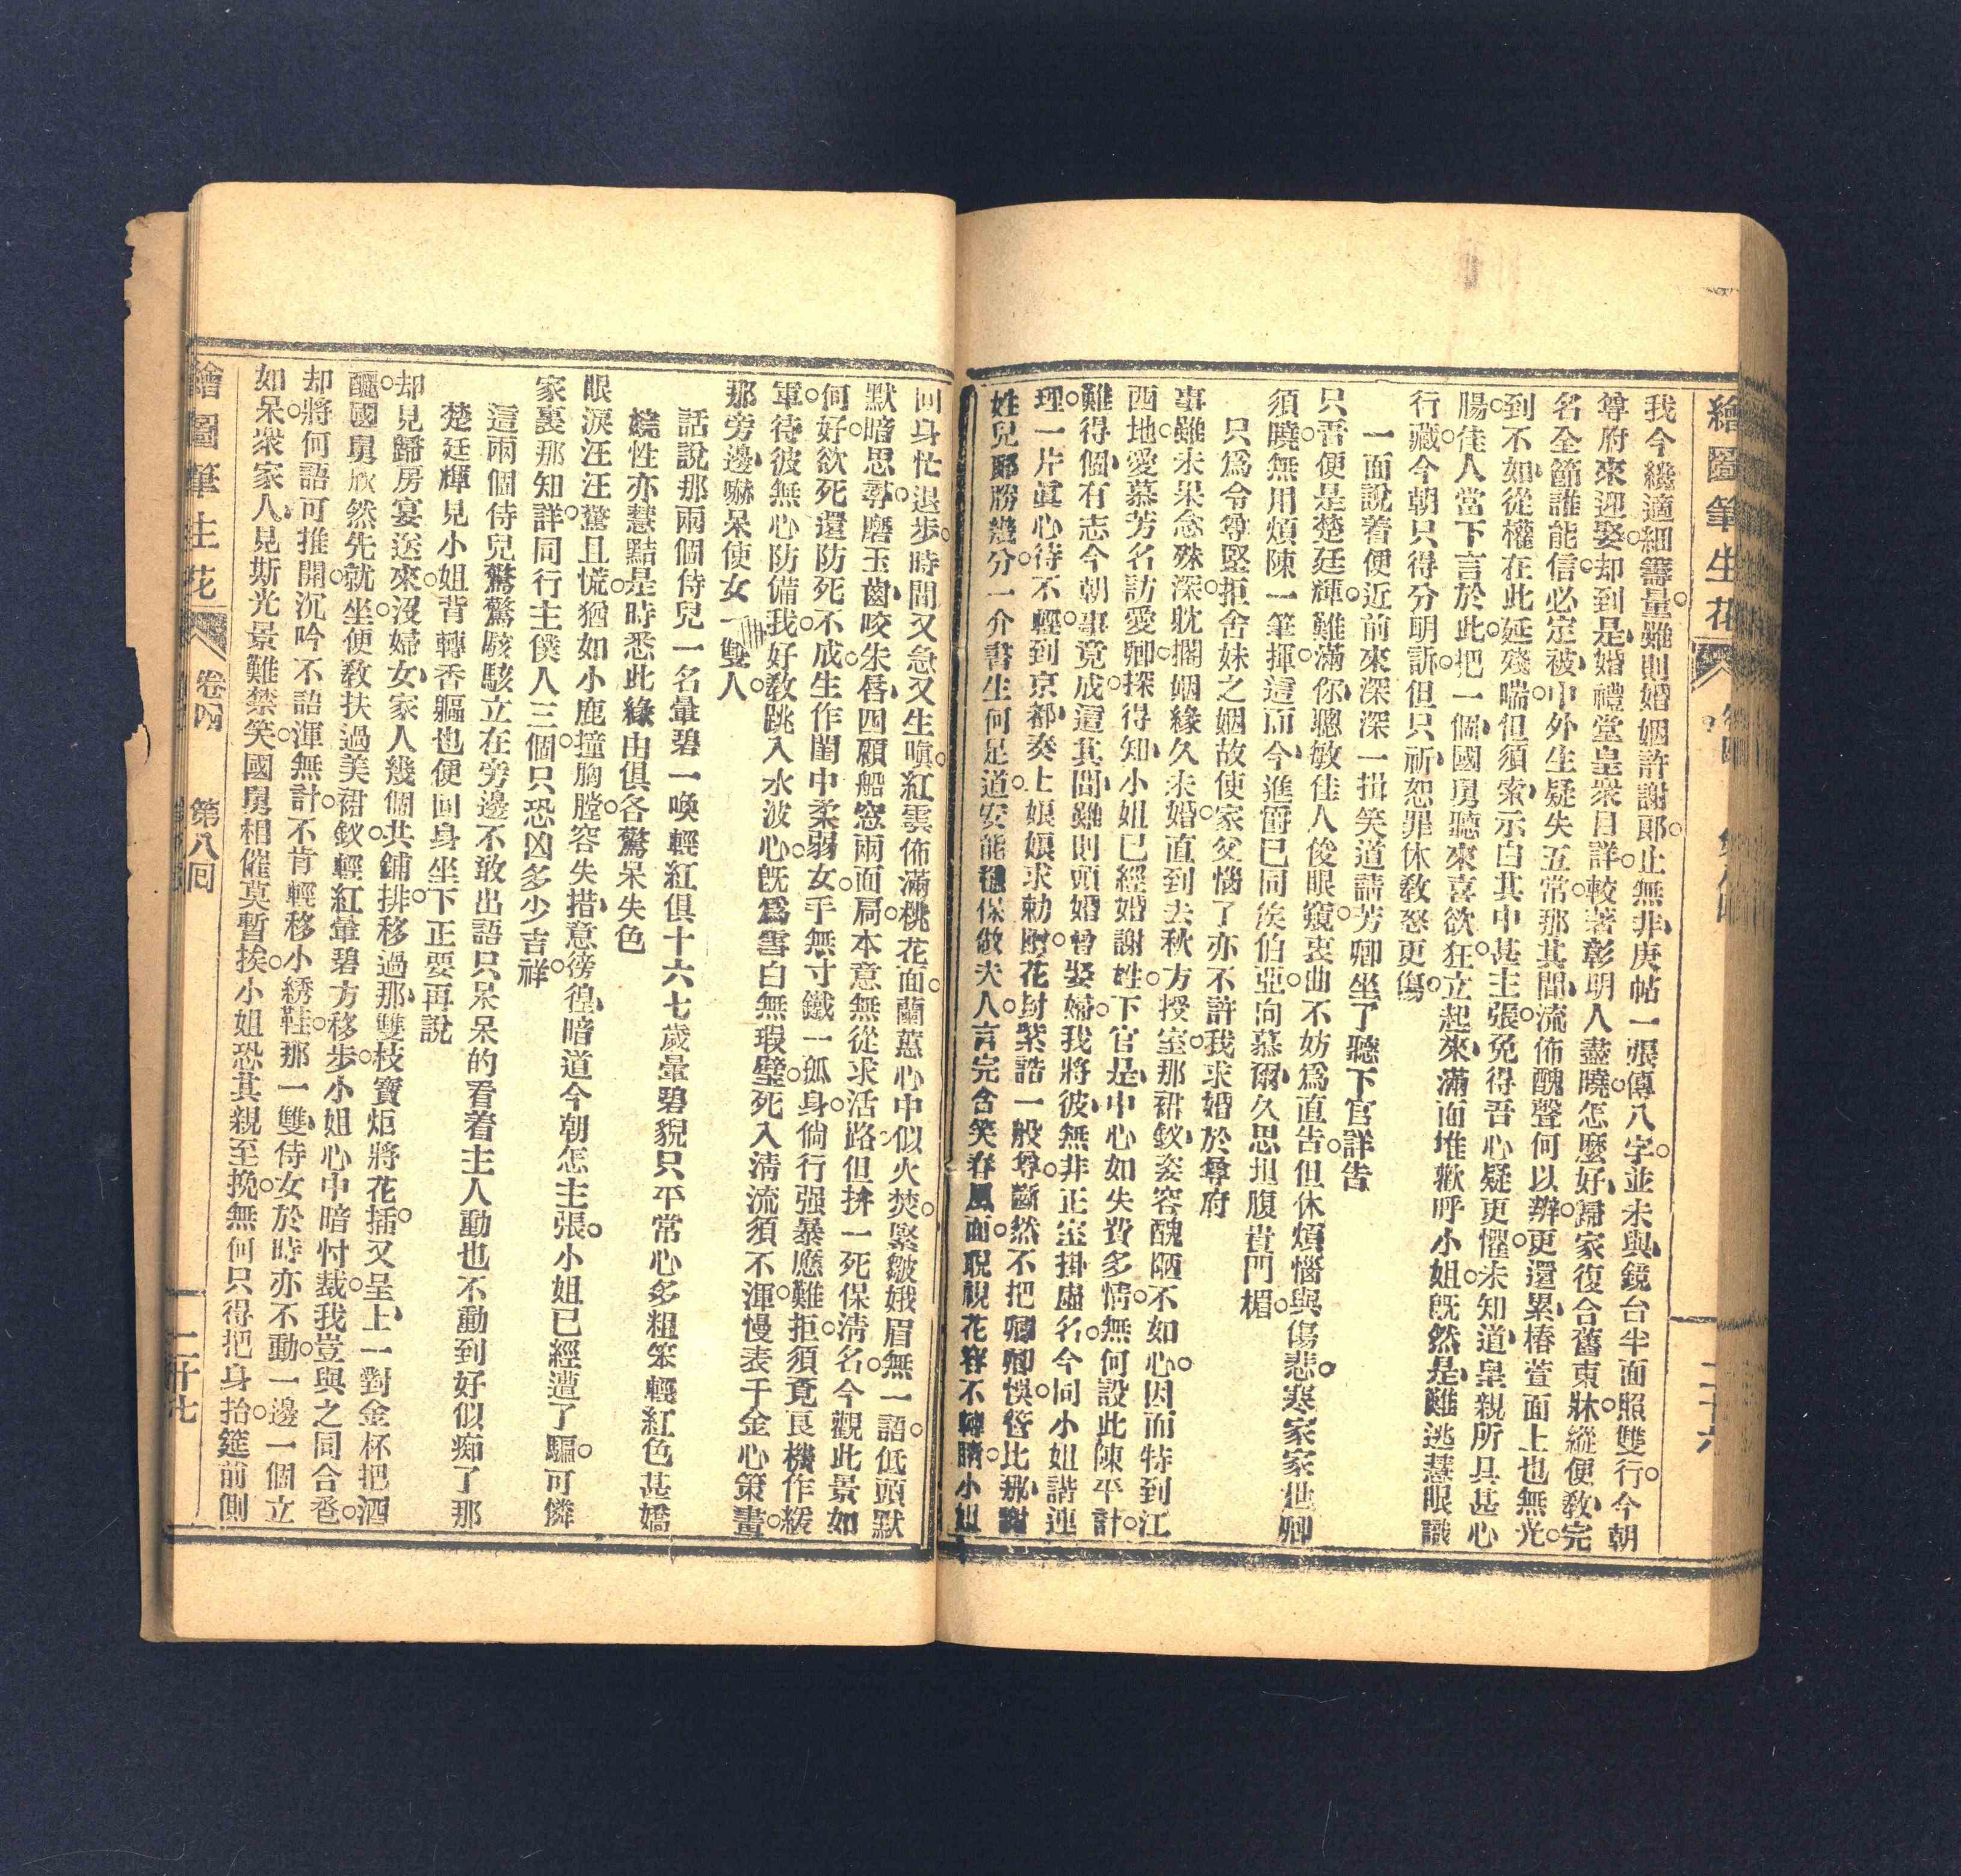 繪圖筆生花 卷四 第八回 二十六
我今纔適細籌量、雖則婚姻許謝郎。止無非、庚帖一張傳八字。並未與、鏡台半面照雙行。今朝
尊府來迎娶。却到是、婚禮堂皇衆目詳。較著彰明人盡曉。怎麼好、歸家復合舊東牀。縱便教、完
名全節誰能信。必定被、中外生疑失五常。那其間、流佈醜聲何以辨。更還累、椿萱面上也無光。
到不如、從權在此延殘喘。但須索、示白其中甚主張。免得吾心疑更懼。未知道、皐親所具甚心
腸。佳人當下言於此。把一個、國舅聽來喜欲狂。立起來、滿面堆歡呼小姐。旣然是、難逃慧眼識
行藏。今朝只得分明訴。但只祈、恕罪休教怒更傷。
一面說着便近前來深深一揖笑道請芳卿坐了聽下官詳告
只吾便是楚廷輝。難滿你、聰敏佳人俊眼窺。衷曲不妨爲直告。但休煩惱與傷悲。寒家家世卿
須曉。無用煩陳一筆揮。這而今、進爵已同侯伯亞。向慕爾、久思坦腹貴門楣。
只爲令尊堅拒舍妹之姻故使家父惱了亦不許我求婚於尊府
事雖未果念殊深。躭擱姻緣久未婚。直到去秋方授室。那裙釵、姿容醜陋不如心。因而特到江
西地。愛慕芳名訪愛卿。探得知、小姐已經婚謝姓。下官是、中心如失費多情。無何設此陳平計。
難得個、有志今朝事竟成。這其間、雖則頭婚曾娶婦。我將彼、無非正室掛虛名。今向小姐諧連
理。一片眞心待不輕。到京都、奏上娘娘求勅贈。花封紫誥一般尊。斷然不把卿卿悞。管比那、謝
姓兒郎勝幾分。一介書生何足道。安能穩保做夫人。言完含笑春風面。覘視花容不轉睛。小姐
回身忙退步。時間又急又生嗔。紅雲佈滿桃花面。蘭蕙心中似火焚。緊皺娥眉無一語。低頭默
默暗思尋。磨玉齒、咬朱唇、四顧船窓兩面扃。本意無從求活路。但拚一死保清名。今觀此景如
何好。欲死還防死不成。生作閨中柔弱女。手無寸鐵一孤身。倘行强暴應難拒。須覔良機作緩
軍。待彼無心防備我。好教跳入水波心。旣爲雪白無瑕璧。死入淸流須不渾。慢表千金心策畫。
那旁邊、嚇呆使女一雙人。
話說那兩個侍兒一名暈碧一喚輕紅俱十六七歲暈碧貌只平常心多粗笨輕紅色甚嬌
嬈性亦慧黠是時悉此緣由俱各驚呆失色
眼淚汪汪驚且慌。猶如小鹿撞胸膛。容失措、意徬徨、暗道今朝怎主張。小姐已經遭了騙。可憐
家裏那知詳。同行主僕人三個。只恐凶多少吉祥。
這兩個侍兒驚驚駭駭立在旁邊不敢出語只呆呆的看着主人動也不動到好似痴了那
楚廷輝見小姐背轉香軀也便回身坐下正要再說
却見歸房宴送來。沒婦女、家人幾個共鋪排。移過那、雙枝寶炬將花揷。又呈上、一對金杯把酒
醞。國舅欣然先就坐。便敎扶過美裙釵。輕紅暈碧方移步。小姐心中暗忖裁。我豈與之同合卺。
却將何語可推開。沉吟不語渾無計。不肯輕移小綉鞋。那一雙、侍女於時亦不動。一邊一個立
如呆。衆家人、見斯光景難禁笑。國舅相催莫暫挨。小姐恐其親至挽。無何只得把身抬。筵前側
繪圖筆生花 卷四 第八回 二十七